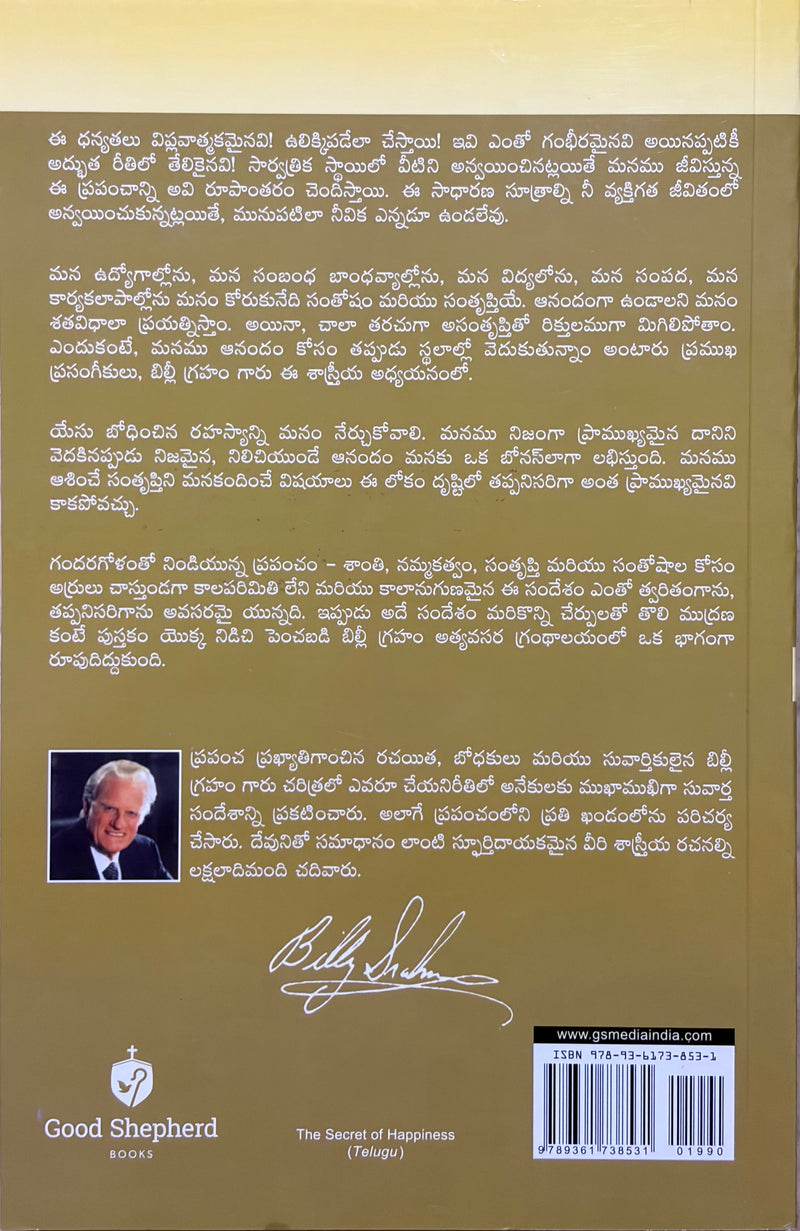 ఈ ధన్యతలు విప్లవాత్మకమైనవి! ఉలిక్కిపడేలా చేస్తాయి! ఇవి ఎంతో గంభీరమైనవి అయినప్పటికీ
అద్భుత రీతిలో తేలికైనవి! సార్వత్రిక స్థాయిలో వీటిని అన్వయించినట్లయితే మనము జీవిస్తున్న
ఈ ప్రపంచాన్ని అవి రూపాంతరం చెందిస్తాయి. ఈ సాధారణ సూత్రాల్ని నీ వ్యక్తిగత జీవితంలో
అన్వయించుకున్నట్లయితే, మునుపటిలా నీవిక ఎన్నడూ ఉండలేవు.
మన ఉద్యోగాల్లోను, మన సంబంధ బాంధవ్యాల్లోను, మన విద్యలోను, మన సంపద, మన
కార్యకలాపాల్లోను మనం కోరుకునేది సంతోషం మరియు సంతృప్తియే. ఆనందంగా ఉండాలని మనం
శతవిధాలా ప్రయత్నిస్తాం. అయినా, చాలా తరచుగా అసంతృప్తితో రిక్తులముగా మిగిలిపోతాం.
ఎందుకంటే, మనము ఆనందం కోసం తప్పుడు స్థలాల్లో వెదుకుతున్నాం అంటారు ప్రముఖ
ప్రసంగీకులు, బిల్లీ గ్రహం గారు ఈ శాస్త్రీయ అధ్యయనంలో.
యేసు బోధించిన రహస్యాన్ని మనం నేర్చుకోవాలి. మనము నిజంగా ప్రాముఖ్యమైన దానిని
వెదకినప్పుడు నిజమైన, నిలిచియుండే ఆనందం మనకు ఒక బోనస్‌లాగా లభిస్తుంది. మనము
ఆశించే సంతృప్తిని మనకందించే విషయాలు ఈ లోకం దృష్టిలో తప్పనిసరిగా అంత ప్రాముఖ్యమైనవి
కాకపోవచ్చు.
గందరగోళంతో నిండియున్న ప్రపంచం – శాంతి, నమ్మకత్వం, సంతృప్తి మరియు సంతోషాల కోసం
అర్రులు చాస్తుండగా కాలపరిమితి లేని మరియు కాలానుగుణమైన ఈ సందేశం ఎంతో త్వరితంగాను,
తప్పనిసరిగాను అవసరమై యున్నది. ఇప్పుడు అదే సందేశం మరికొన్ని చేర్పులతో తొలి ముద్రణ
కంటే పుస్తకం యొక్క నిడివి పెంచబడి బిల్లీ గ్రహం అత్యవసర గ్రంథాలయంలో ఒక భాగంగా
రూపుదిద్దుకుంది.
ప్రపంచ ప్రఖ్యాతిగాంచిన రచయిత, బోధకులు మరియు సువార్తికులైన బిల్లీ
గ్రహం గారు చరిత్రలో ఎవరూ చేయనిరీతిలో అనేకులకు ముఖాముఖిగా సువార్త
సందేశాన్ని ప్రకటించారు. అలాగే ప్రపంచంలోని ప్రతి ఖండంలోను పరిచర్య
చేసారు. దేవునితో సమాధానం లాంటి స్ఫూర్తిదాయకమైన వీరి శాస్త్రీయ రచనల్ని
లక్షలాదిమంది చదివారు.
Billy Graham
www.gsmediaindia.com
ISBN 978-93-6173-853-1
9 789361 738531
01990
Good Shepherd
BOOKS
The Secret of Happiness
(Telugu)